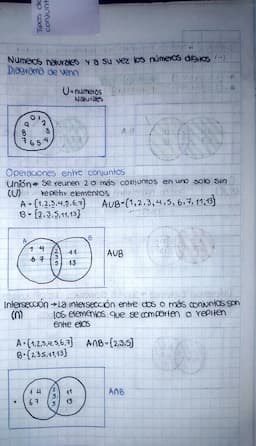 Tipos de
conjuntos
Numeros naturales y a su vez los números dígitos
Diagrama de venn
U=numeros
Naturales
0 1
9 2
8 3
7 6 5 4
Operaciones entre conjuntos
Unión→ Se reunen 2 o más conjuntos en uno solo sin
(U) repetir elementos
A={1,2,3,4,5,6,7} AUB={1,2,3,4,5,6,7,11,13}
B={2,3,5,11,13}
A B
1 4 2 11
6 7 3 13
5
AUB
Intersección →La intersección entre dos o más conjuntos son
(∩) los elementos que se comparten o repiten
entre ellos
A={1,2,3,4,5,6,7} A∩B={2,3,5}
B={2,3,5,11,13}
1 4 2 11
6 7 3 13
5
A∩B